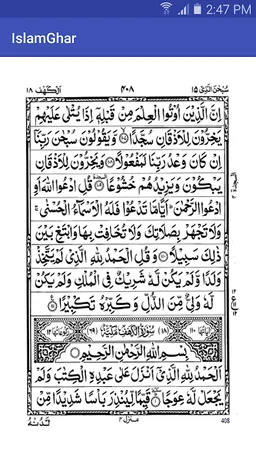 2:47 PM
IslamGhar
الكهف ١٨
٤٠٨
سبحن الذى ١٥
اِنَّ الَّذِيْنَ اُوْتُوا الْعِلْمَ مِنْ قَبْلِهٖۤ اِذَا يُتْلٰى عَلَيْهِمْ
يَخِرُّوْنَ لِلْاَذْقَانِ سُجَّدًا ۙ وَّيَقُوْلُوْنَ سُبْحٰنَ رَبِّنَاۤ
اِنْ كَانَ وَعْدُ رَبِّنَا لَمَفْعُوْلًا وَيَخِرُّوْنَ لِلْاَذْقَانِ
يَبْكُوْنَ وَيَزِيْدُهُمْ خُشُوْعًا قُلِ ادْعُوا اللّٰهَ اَوِ
ادْعُوا الرَّحْمٰنَ ؕ اَيًّا مَّا تَدْعُوْا فَلَهُ الْاَسْمَآءُ الْحُسْنٰى ۚ
وَلَا تَجْهَرْ بِصَلَاتِكَ وَلَا تُخَافِتْ بِهَا وَابْتَغِ بَيْنَ
ذٰلِكَ سَبِيْلًا وَقُلِ الْحَمْدُ لِلّٰهِ الَّذِيْ لَمْ يَتَّخِذْ
وَلَدًا وَّلَمْ يَكُنْ لَّهٗ شَرِيْكٌ فِي الْمُلْكِ وَلَمْ يَكُنْ
لَّهٗ وَلِيٌّ مِّنَ الذُّلِّ وَكَبِّرْهُ تَكْبِيْرًا
اٰيَاتُهَا ١١٠ (١٨) سُوْرَةُ الْكَهْفِ مَكِّيَّةٌ (٦٩) رُكُوْعَاتُهَا ١٢
بِسْمِ اللّٰهِ الرَّحْمٰنِ الرَّحِيْمِ
اَلْحَمْدُ لِلّٰهِ الَّذِيْۤ اَنْزَلَ عَلٰى عَبْدِهِ الْكِتٰبَ وَلَمْ
يَجْعَلْ لَّهٗ عِوَجًا قَيِّمًا لِّيُنْذِرَ بَاْسًا شَدِيْدًا مِّنْ
لَّدُنْهُ
منزل ٤
408